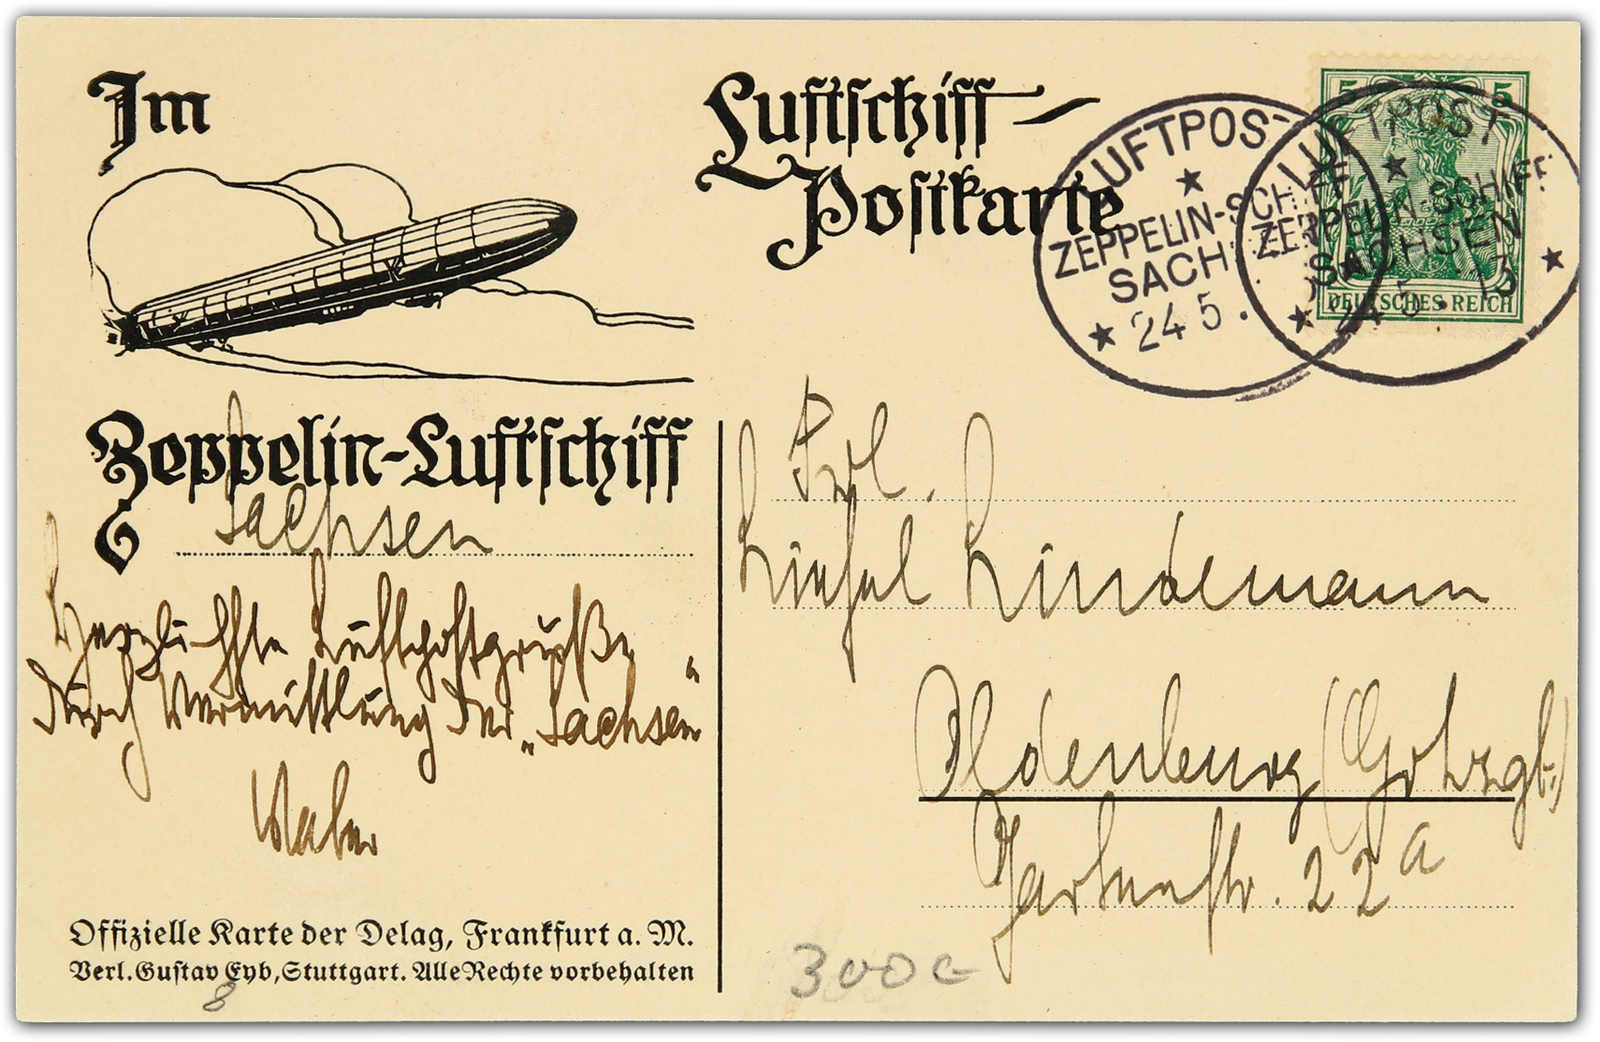 Im
Zeppelin-Luftschiff
Sachsen
Herzlichste Luftpostgrüße
durch Vermittlung der „Sachsen“
Offizielle Karte der Delag, Frankfurt a. M.
Verl. Gustav Eyb, Stuttgart. Alle Rechte vorbehalten
8
Luftschiff-
Postkarte
LUFTPOST
ZEPPELIN-SCHIFF
SACH
24 5.
LUFTPOST
ZEPPELIN-SCHIFF
SACHSEN
24 5. 13
5 5
DEUTSCHES REICH
Frl.
Liesel Lindemann
Oldenburg (Grhzgt.)
Gartenstr. 22a
300